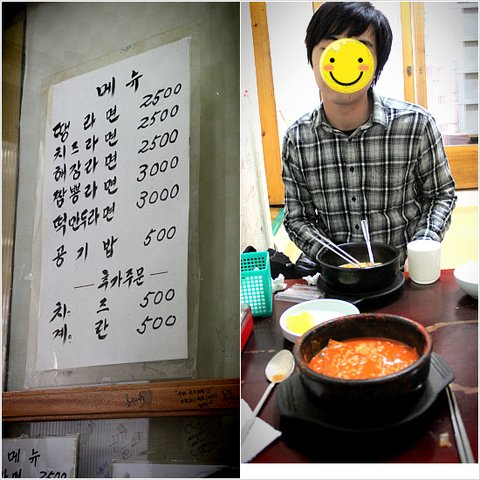 메뉴
땡라면 2500
치즈라면 2500
해장라면 2500
짬뽕라면 3000
떡만두라면 3000
공기밥 500
추가주문
치즈 500
계란 500
메뉴
라면 2500